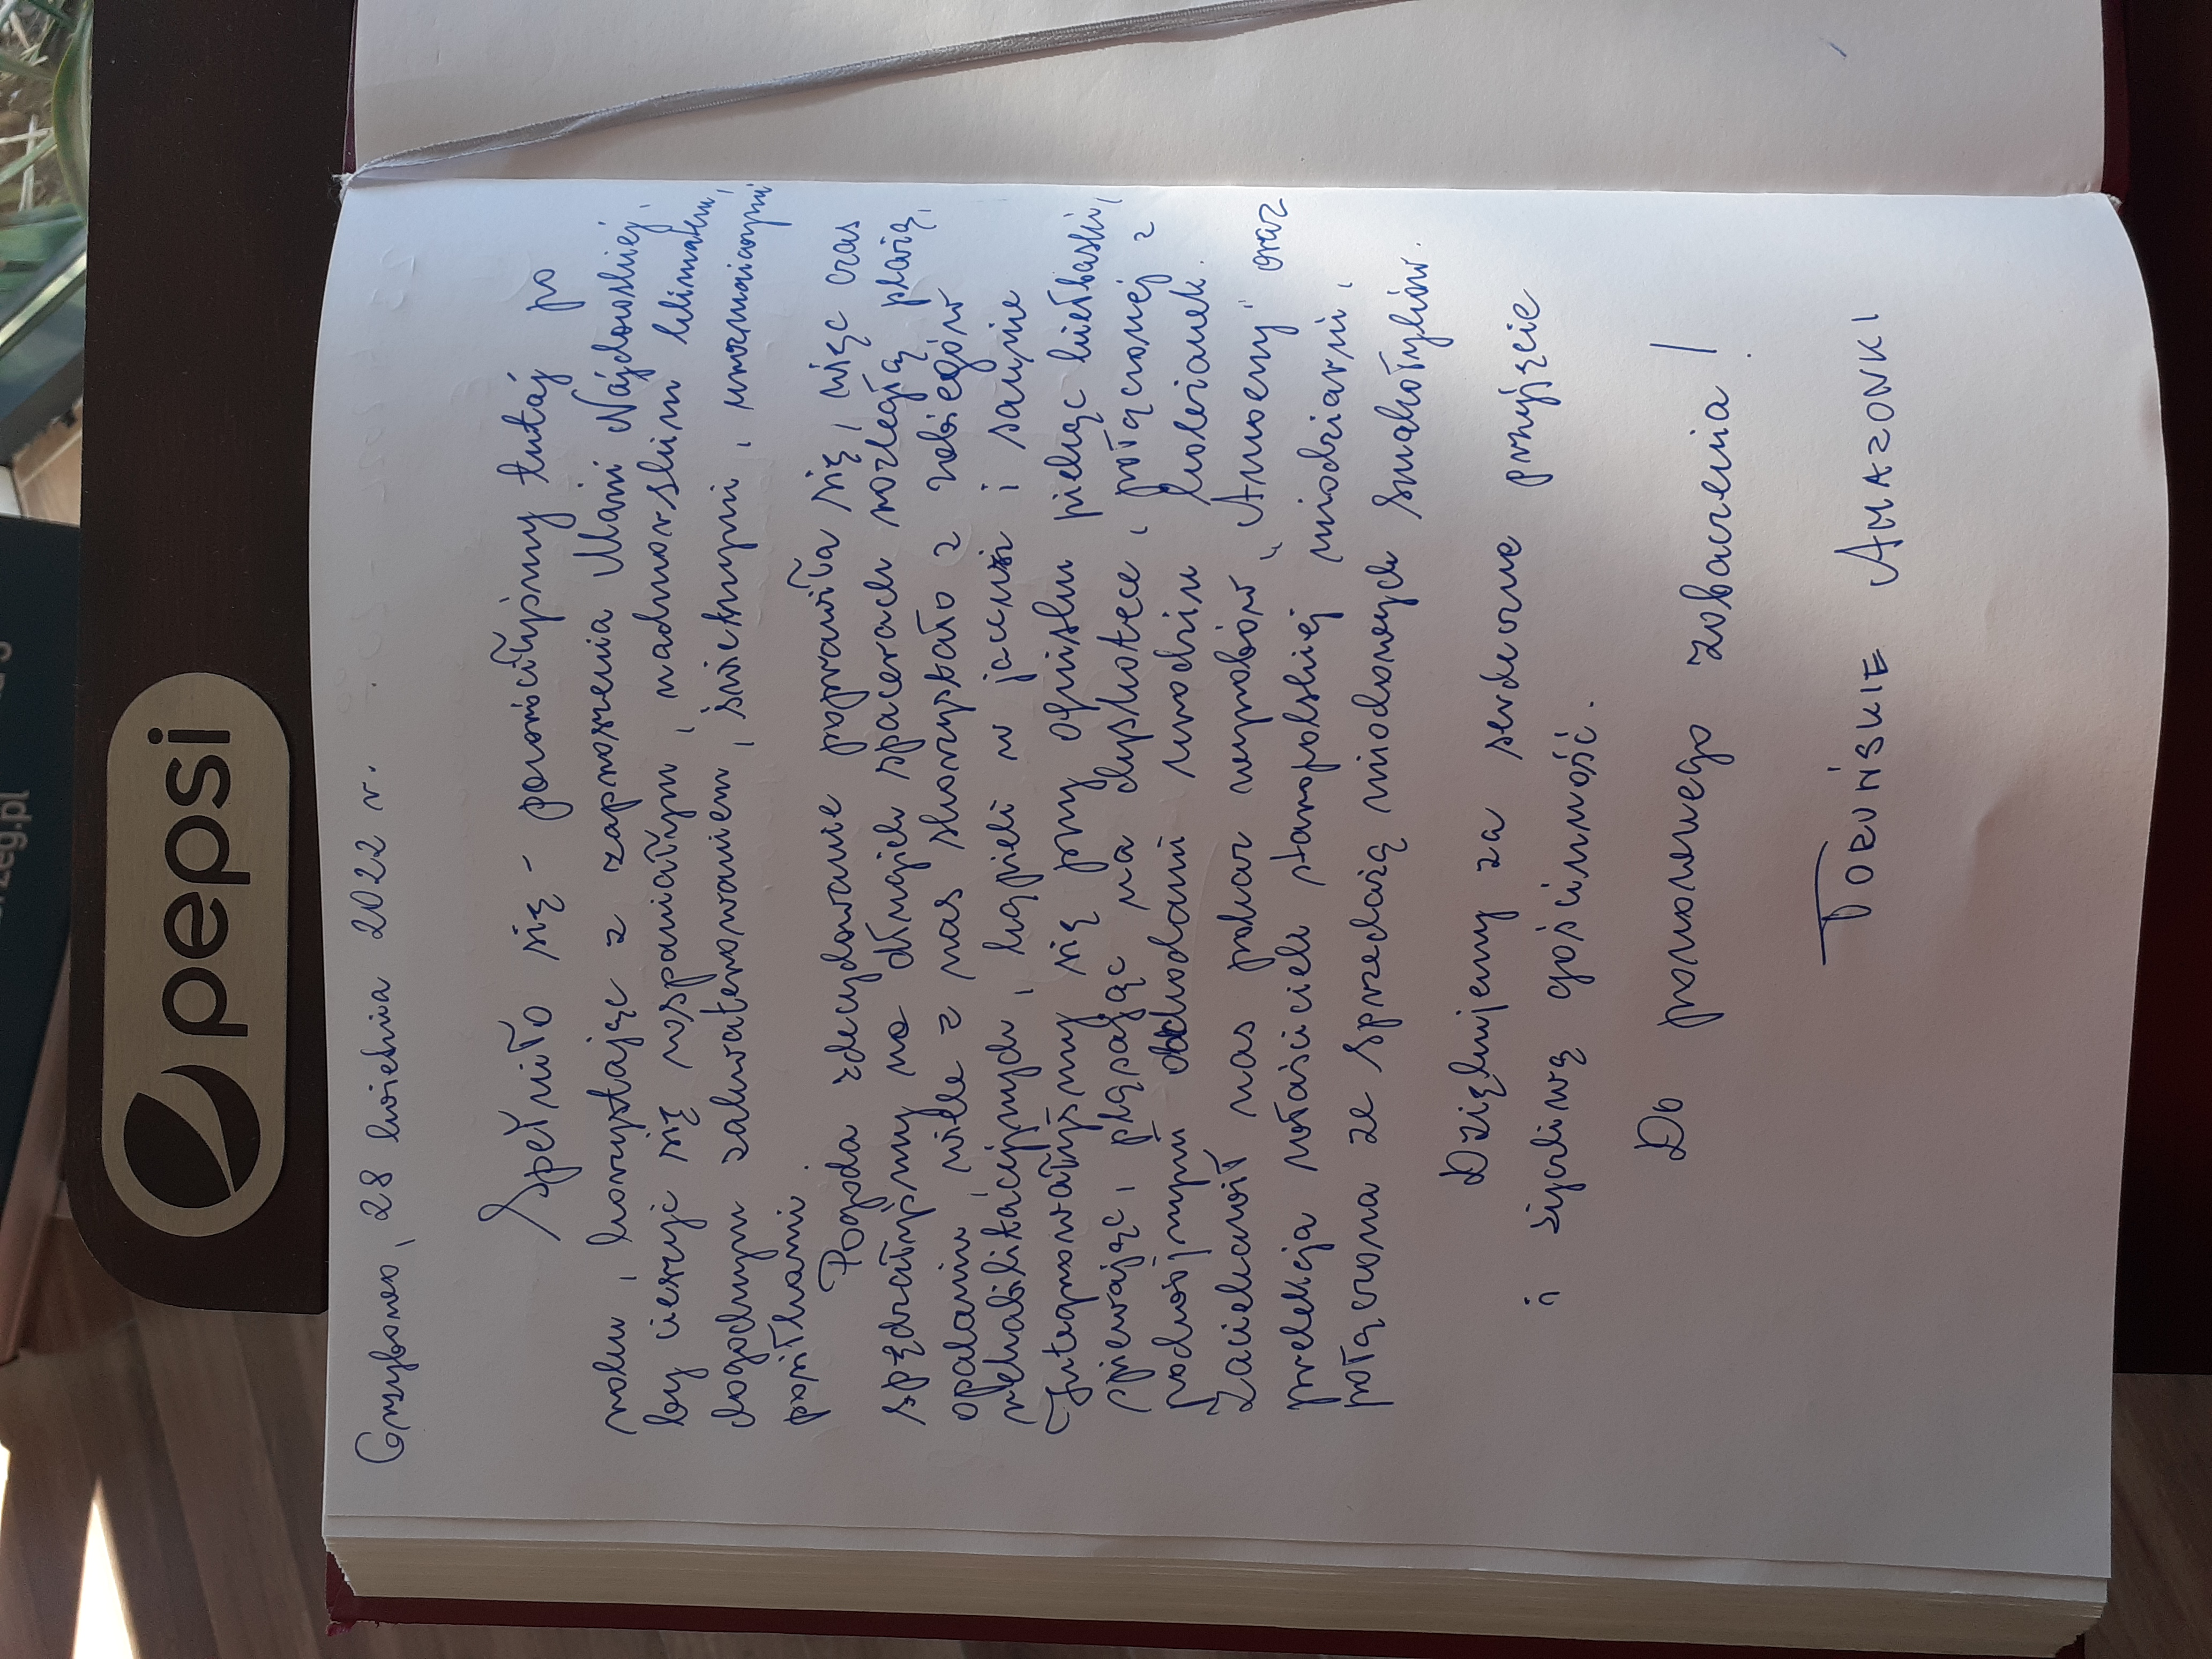 Grzybowo, 28 kwietnia 2022 r.
Spełniło się - powróciłyśmy tutaj po
roku, korzystając z zaproszenia Mani Najdowskiej,
by cieszyć się wspaniałym, nadmorskim klimatem,
dogodnym zakwaterowaniem, świetnymi, urozmaiconymi
posiłkami.
Pogoda zdecydowanie poprawiła się, więc czas
spędzałyśmy na długich spacerach rozległą plażą,
opalaniu wiele z nas skorzystało z zabiegów
rehabilitacyjnych, kąpieli w jacuzzi i saunie
Integrowałyśmy się przy ognisku piekąc kiełbaski,
śpiewając, pląsając na dyskotece, połączonej z
podwójnymi obchodami urodzin koleżanek.
Zaciekawił nas pokaz wyrobów „Amoeny" oraz
prelekcja właścicieli staropolskiej miodziarni,
połączona ze sprzedażą miodowych smakołyków.
Dziękujemy za serdeczne przyjęcie
i życzliwą gościnność.
Do ponownego zobaczenia!
TORUŃSKIE AMAZONKI
pepsi
zeg.pl